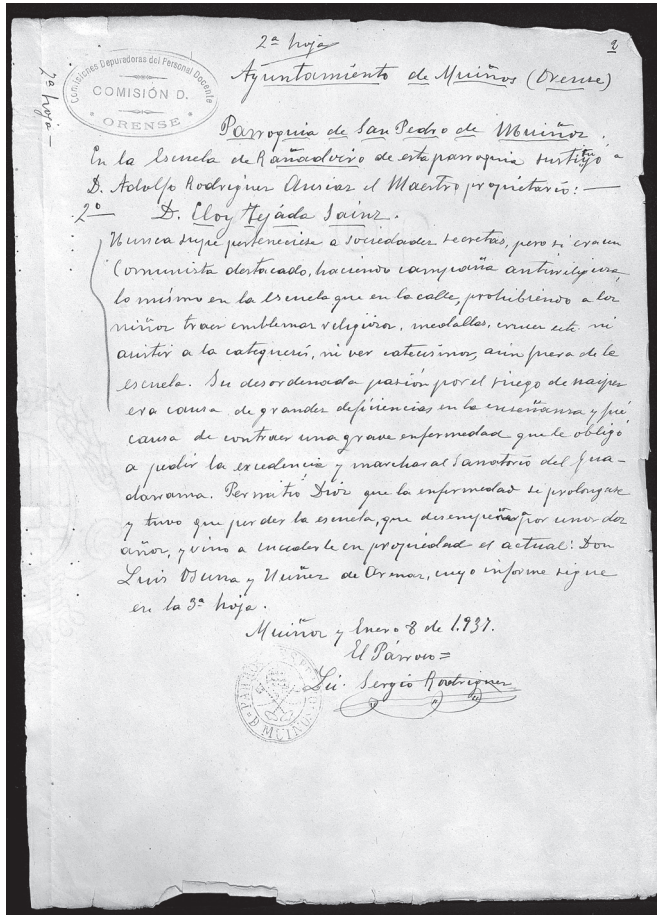 2ª hoja
2
2ª hoja—
Comisiones Depuradoras del Personal Docente
COMISIÓN D.
ORENSE
Ayuntamiento de Muiños (Orense)
Parroquia de San Pedro de Muiños.
En la Escuela de Rañadoiro de esta parroquia sustituyó a
D. Adolfo Rodriguez Ansias el Maestro propietario:—
2º D. Eloy Tejáda Saínz.
Nunca supe perteneciese a sociedades secretas, pero si era un
Comunista destacado, haciendo campaña antireligiosa,
lo mismo en la escuela que en la calle, prohibiendo a los
niños traer emblemas religiosos, medallas, cruces etc ni
asistir a la catequesis, ni ver catecismos, aún fuera de la
escuela. Su desordenada pasión por el juego de naipes
era causa de grandes deficiencias en la enseñanza y fué
causa de contraer una grave enfermedad que le obligó
a pedir la excedencia y marchar al Sanatorio del Gua-
darrama. Permitió Dios que la enfermedad se prolongase
y tuvo que perder la escuela, que desempeñó por unos dos
años, y vino a sucederle en propiedad el actual: Don
Luis Osuna y Nuñez de Arenas, cuyo informe sigue
en la 3ª hoja.
Muiños y Enero 8 de 1.937.
El Párroco=
Lic. Sergio Rodriguez
MUIÑOS